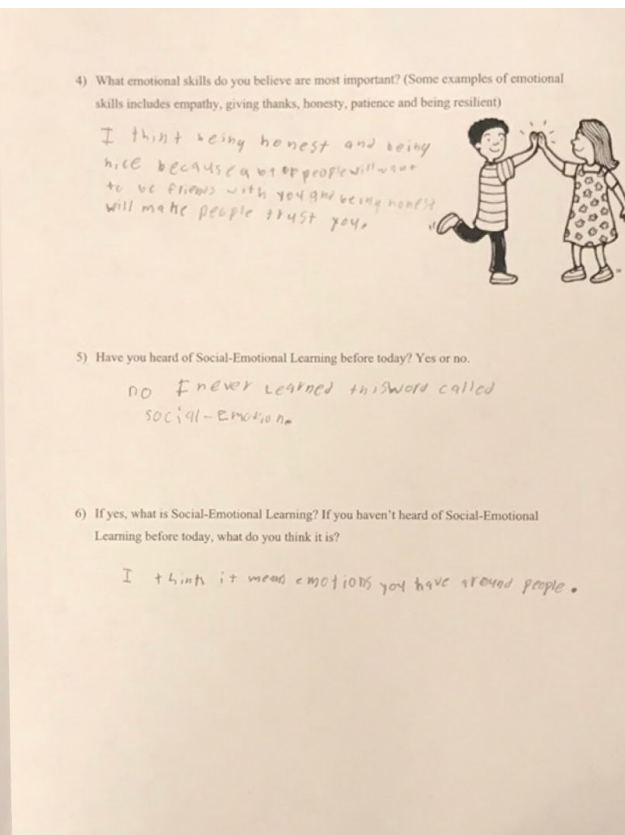 4) What emotional skills do you believe are most important? (Some examples of emotional
skills includes empathy, giving thanks, honesty, patience and being resilient)
I think being honest and being
nice because a lot of people will want
to be friends with you and being honest
will make people trust you.
5) Have you heard of Social-Emotional Learning before today? Yes or no.
no I never Learned this word called
social-Emotion.
6) If yes, what is Social-Emotional Learning? If you haven't heard of Social-Emotional
Learning before today, what do you think it is?
I think it means emotions you have around people.